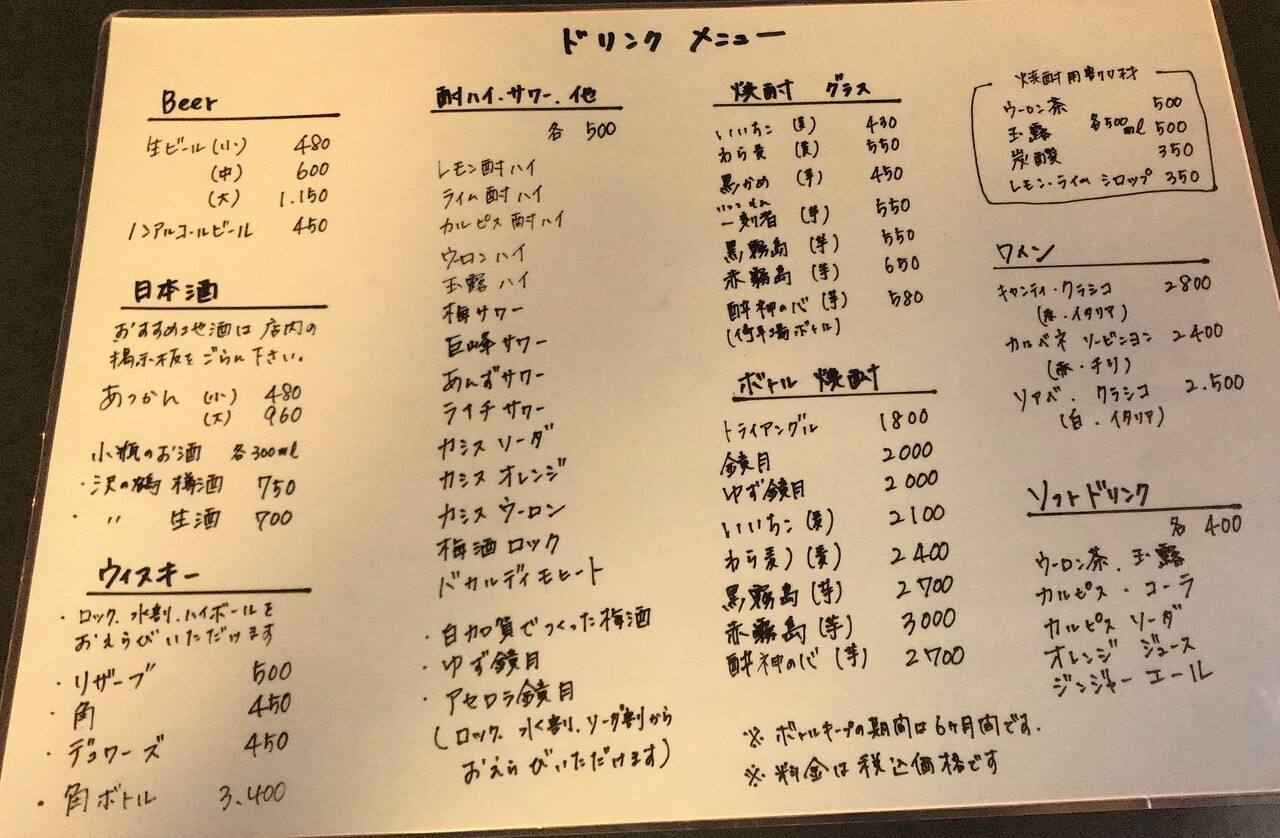 ドリンク メニュー
Beer
生ビール(小) 480
(中) 600
(大) 1.150
ノンアルコールビール 450
日本酒
おすすめ地酒は店内の
掲示板をごらん下さい。
あつかん (小) 480
(大) 960
小瓶のお酒 各300ml
・沢の鶴 樽酒 750
・ 〃 生酒 700
ウィスキー
・ロック、水割、ハイボールを
おえらびいただけます
・リザーブ 500
・角 450
・デュワーズ 450
・角ボトル 3.400
酎ハイ、サワー、他
各 500
レモン酎ハイ
ライム酎ハイ
カルピス酎ハイ
ウーロンハイ
玉露ハイ
梅サワー
巨峰サワー
あんずサワー
ライチサワー
カシスソーダ
カシスオレンジ
カシスウーロン
梅酒ロック
バカルディモヒート
・白加賀でつくった梅酒
・ゆず鏡月
・アセロラ鏡月
(ロック、水割、ソーダ割から
おえらびいただけます)
焼酎 グラス
いいちこ (麦) 430
わら麦 (麦) 550
黒かめ (芋) 450
いっこもん
一刻者 (芋) 550
黒霧島 (芋) 550
赤霧島 (芋) 650
酔神の心 (芋) 580
ボトル 焼酎
トライアングル 1800
鏡月 2000
ゆず鏡月 2000
いいちこ (麦) 2100
わら麦 (麦) 2400
黒霧島 (芋) 2700
赤霧島 (芋) 3000
酔神の心 (芋) 2700
※ ボトルキープの期間は6ヶ月間です.
※ 料金は税込価格です
焼酎用割り材
ウーロン茶 500
玉露 各500ml 500
炭酸 350
レモン・ライム シロップ 350
ワイン
キャンティ・クラシコ 2800
(赤・イタリア)
カルベネ ソービンヨン 2400
(赤・チリ)
ソアベ・クラシコ 2.500
(白・イタリア)
ソフトドリンク
各 400
ウーロン茶、玉露
カルピス・コーラ
カルピスソーダ
オレンジ ジュース
ジンジャーエール